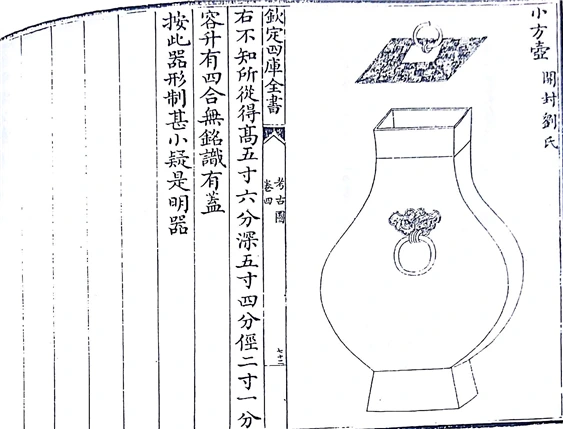 小方壺 開封劉氏
欽定四庫全書
考古圖
卷四
七十二
右不知所從得髙五寸六分深五寸四分徑二寸一分
容升有四合無銘識有蓋
按此器形制甚小疑是明器